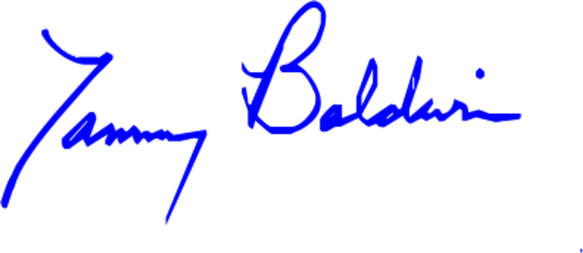 Tammy Baldwin